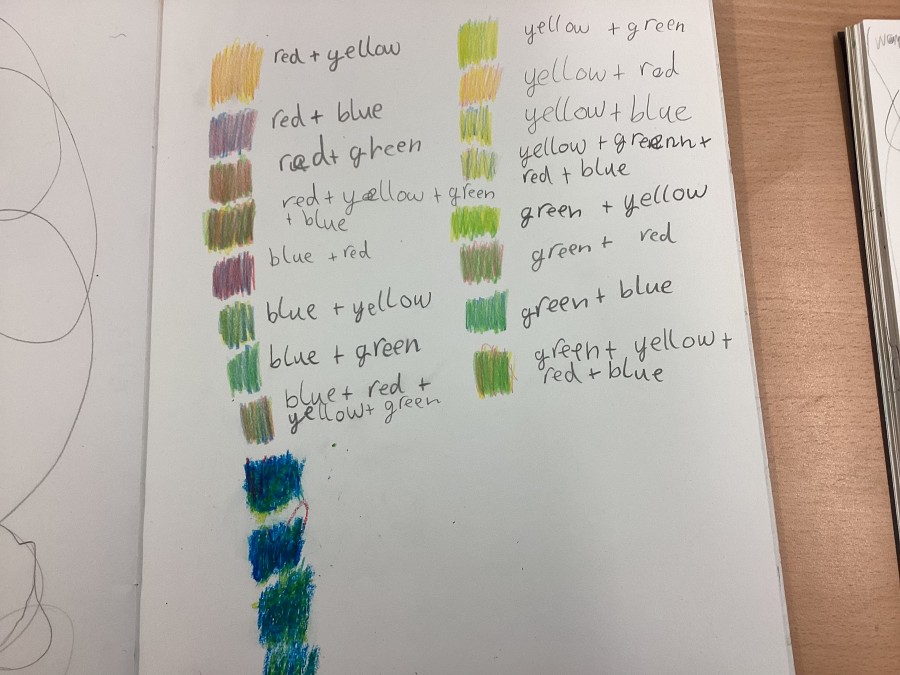 red + yellow
red + blue
red + green
red + yellow + green
+ blue
blue + red
blue + yellow
blue + green
blue + red +
yellow + green
yellow + green
yellow + red
yellow + blue
yellow + greenn +
red + blue
green + yellow
green + red
green + blue
green + yellow +
red + blue